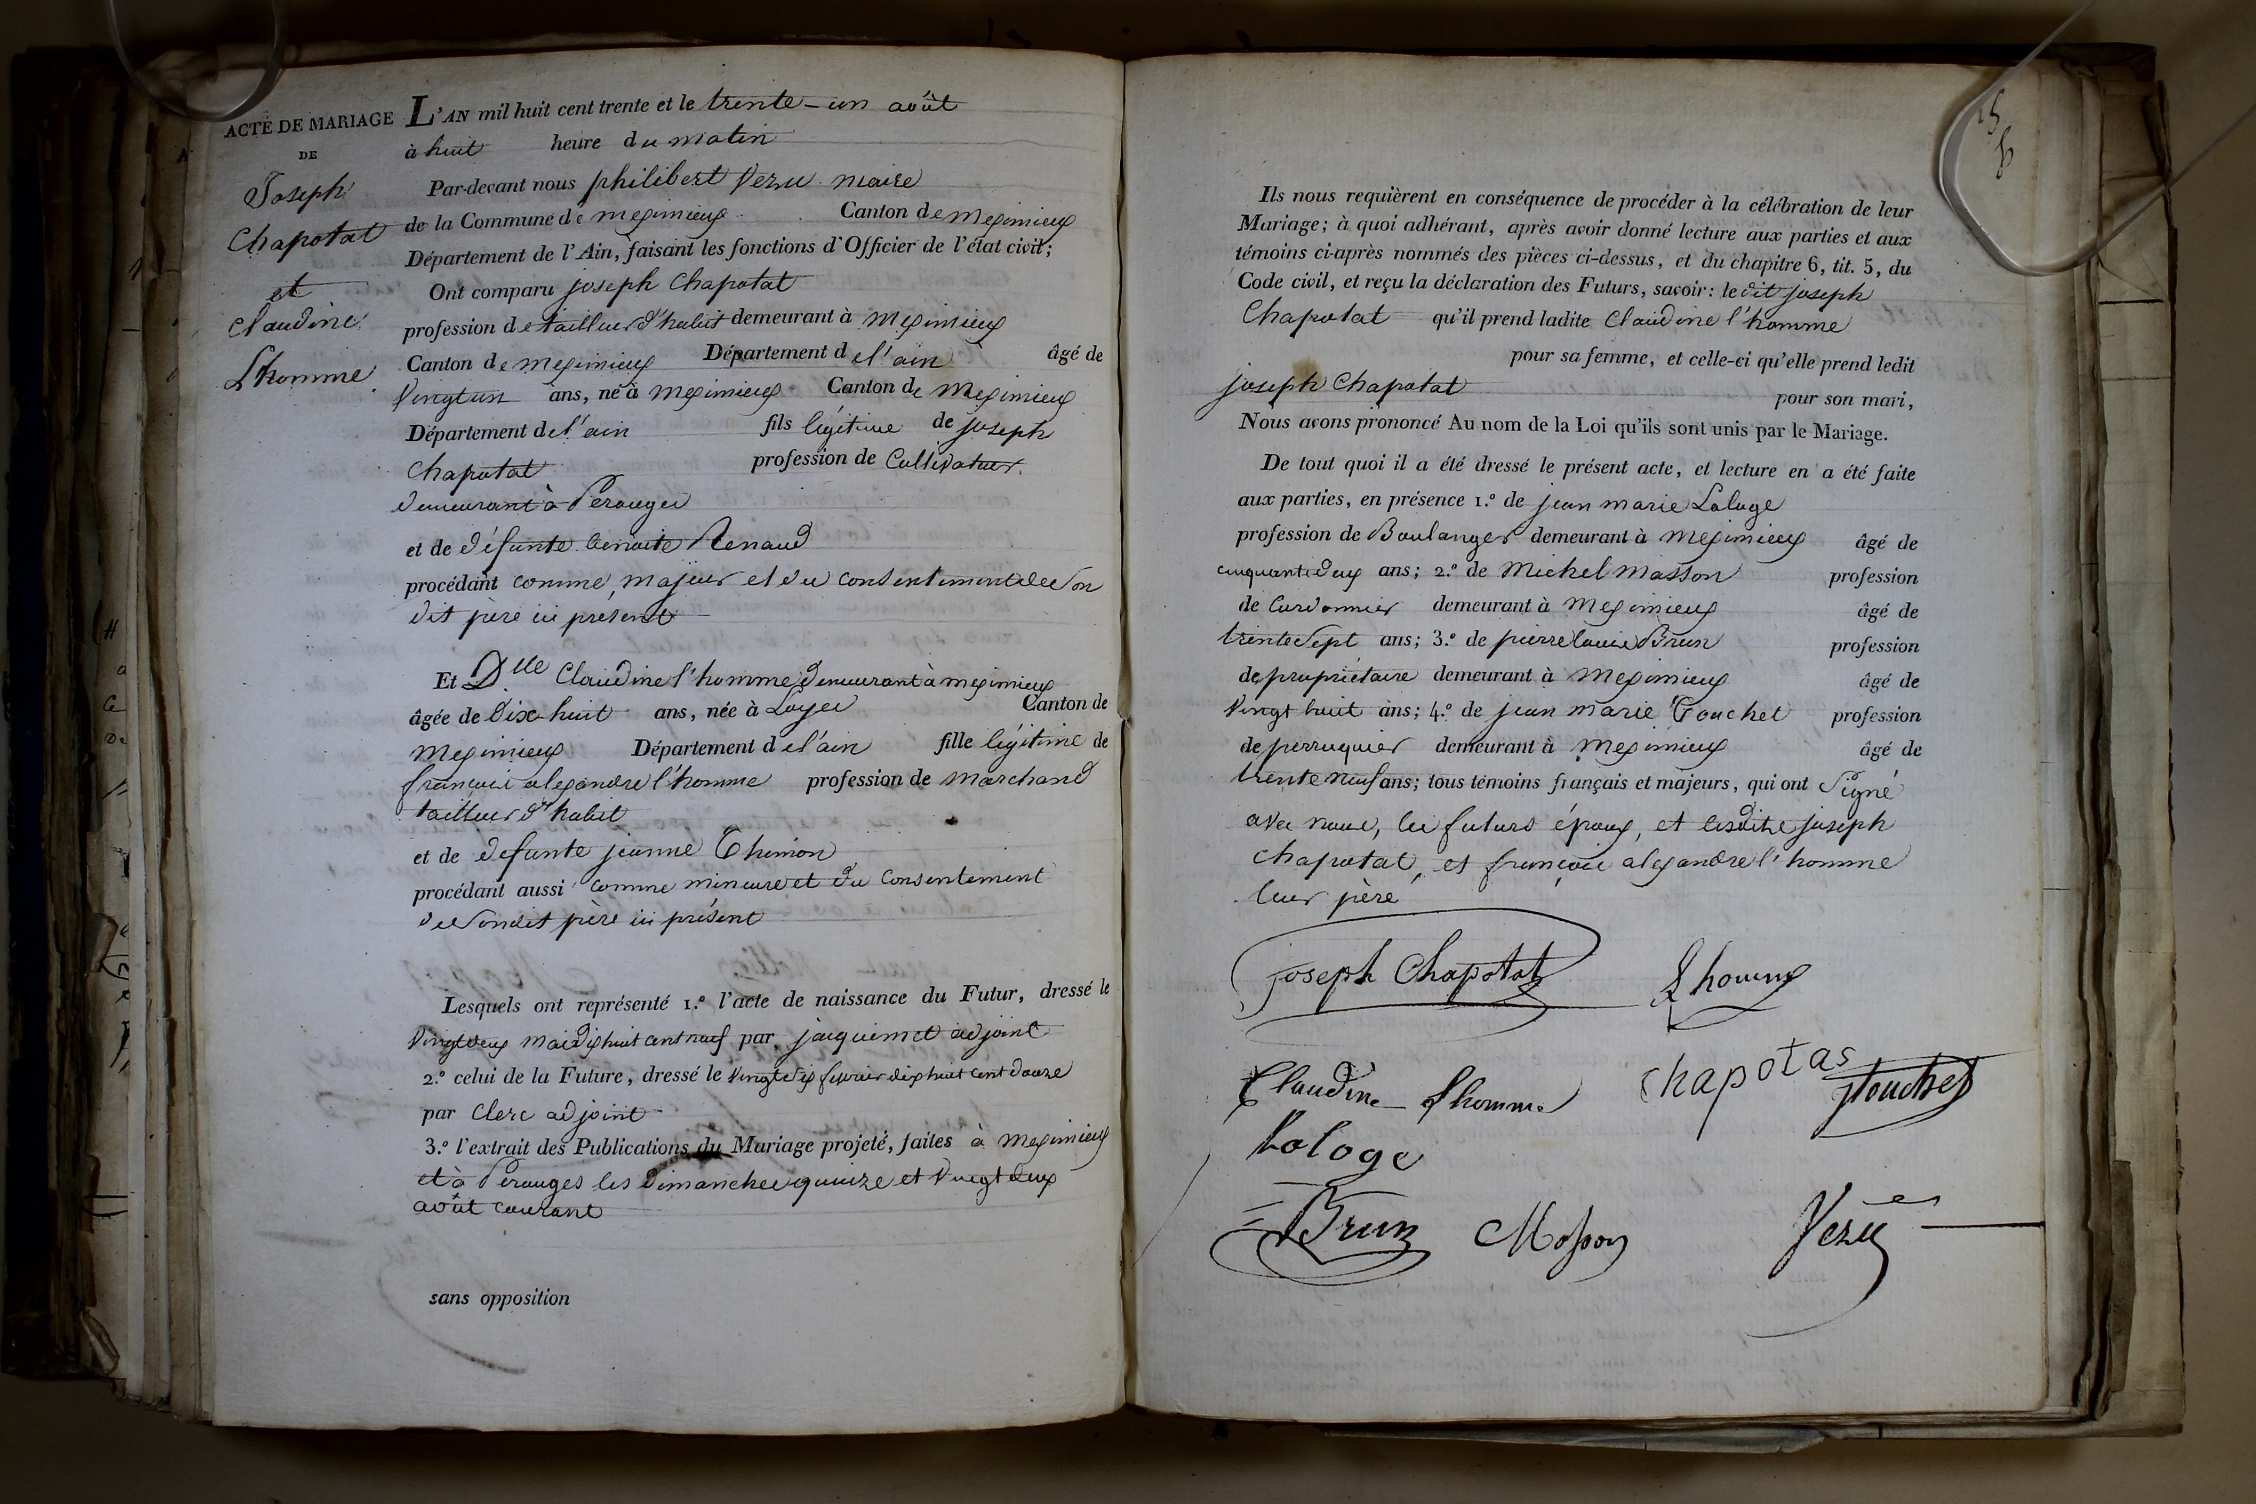 ACTE DE MARIAGE
DE
Joseph
Chapotat
et
Claudine
L'homme
L'AN mil huit cent trente et le trente-un août
à huit heure du matin
Par-devant nous philibert Vezu maire
de la Commune de meximieux Canton de meximieux
Département de l'Ain, faisant les fonctions d'Officier de l'état civil;
Ont comparu joseph Chapotat
profession de tailleur d'habit demeurant à meximieux
Canton de meximieux Département de l'ain âgé de
Vingt un ans, né à meximieux Canton de meximieux
Département de l'ain fils légitime de joseph
Chapotat profession de Cultivateur
demeurant à Perouges
et de défunte benoite Renaud
procédant comme majeur et du consentement de Son
dit père ici présent
Et Dlle Claudine l'homme demeurant à meximieux
âgée de Dix-huit ans, née à Loyes Canton de
meximieux Département de l'ain fille légitime de
françois alexandre l'homme profession de marchand
tailleur d'habit
et de defunte jeanne Thimon
procédant aussi comme mineure et du Consentement
de Sondit père ici présent
Lesquels ont représenté 1.º l'acte de naissance du Futur, dressé le
Vingt deux mai dix huit cent neuf par jacquemet adjoint
2.º celui de la Future, dressé le Vingt Six fevrier dix huit cent douze
par Clerc adjoint
3.º l'extrait des Publications du Mariage projeté, faites à meximieux
et à Perouges les Dimanches quinze et Vingt deux
août courant
sans opposition
Ils nous requièrent en conséquence de procéder à la célébration de leur
Mariage; à quoi adhérant, après avoir donné lecture aux parties et aux
témoins ci-après nommés des pièces ci-dessus, et du chapitre 6, tit. 5, du
Code civil, et reçu la déclaration des Futurs, savoir: le dit joseph
Chapotat qu'il prend ladite Claudine l'homme
pour sa femme, et celle-ci qu'elle prend ledit
joseph Chapotat
pour son mari,
Nous avons prononcé Au nom de la Loi qu'ils sont unis par le Mariage.
De tout quoi il a été dressé le présent acte, et lecture en a été faite
aux parties, en présence 1.º de jean marie Laloge
profession de Boulanger demeurant à meximieux âgé de
cinquante deux ans; 2.º de Michel Masson profession
de Cordonnier demeurant à meximieux âgé de
trente Sept ans; 3.º de pierre louis Brun profession
de propriétaire demeurant à meximieux âgé de
Vingt huit ans; 4.º de jean marie Touchet profession
de perruquier demeurant à meximieux âgé de
trente neuf ans; tous témoins français et majeurs, qui ont Signé
avec nous, les futurs époux, et lesdits joseph
Chapotat, et françois alexandre l'homme
leur père
joseph Chapotat Lhomme
Claudine lhomme Chapotas jTouchet
Laloge
Brun Masson Vezu